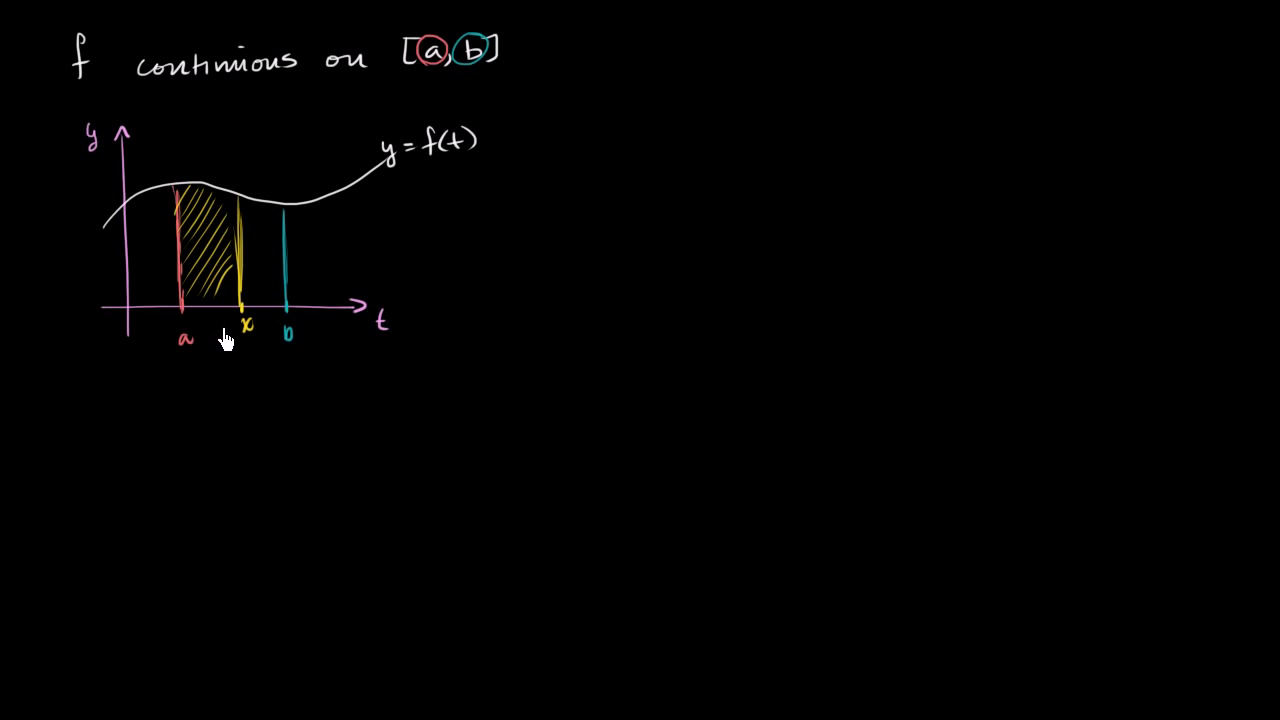 f continuous on [a,b]
y
y = f(t)
x
t
a
b